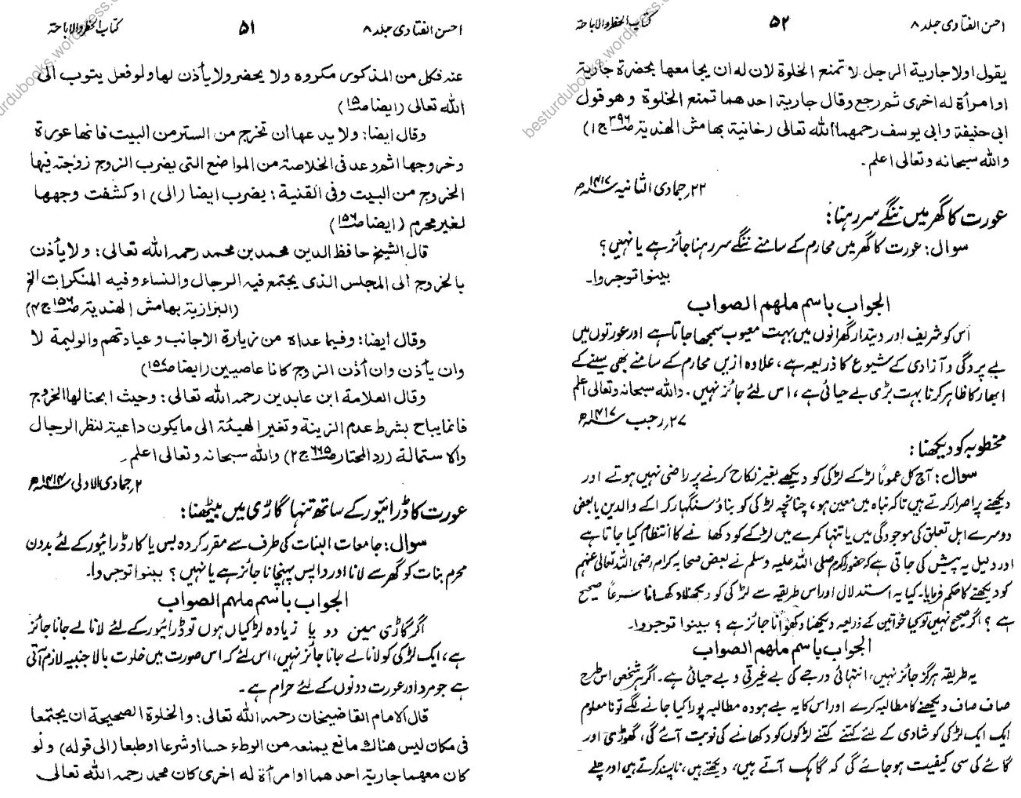 احسن الفتاوی جلد ۸
۵۱
کتاب الحظر والاباحۃ
عنہ فکل من المذکور مکروہ ولا یحضر ولا یأذن لھا ولو فعل یتوب الی
اللہ تعالی (ایضا ص۱۵۶)
وقال ایضا: ولا یدعھا ان تخرج من الستر من البیت فانھا عورۃ
وخروجھا اثم وعد فی الخلاصۃ من المواضع التی یضرب الزوج زوجتہ فیھا
الخروج من البیت وفی القنیۃ: یضرب ایضا (الی) او کشفت وجھھا
لغیر محرم (ایضا ص۱۵۶)
قال الشیخ حافظ الدین محمد بن محمد رحمہ اللہ تعالی: ولا یأذن
بالخروج الی المجلس الذی یجتمع فیہ الرجال والنساء وفیہ المنکرات الخ
(البزازیۃ بھامش الھندیۃ ص۱۵۶ ج۴)
وقال ایضا: وفیما عداہ من زیارۃ الاجانب وعیادتھم والولیمۃ لا
وان یأذن وان أذن الزوج کانا عاصیین (ایضا ص۱۵۷)
وقال العلامۃ ابن عابدین رحمہ اللہ تعالی: وحیث ابحنا لھا الخروج
فانما یباح بشرط عدم الزینۃ وتغیر الھیئۃ الی مایکون داعیۃ لنظر الرجال
والاستمالۃ (رد المحتار ص۶۶۵ ج۲) واللہ سبحانہ وتعالی اعلم.
۲ جمادی الاولی
عورت کا ڈرائیور کے ساتھ تنہا گاڑی میں بیٹھنا:
سوال: جامعات البنات کی طرف سے مقرر کردہ بس یا کار ڈرائیور کے لئے بدون
محرم بنات کو گھر سے لانا اور واپس پہنچانا جائز ہے یا نہیں؟ بینوا توجروا.
الجواب باسم ملہم الصواب
اگر گاڑی میں دو یا زیادہ لڑکیاں ہوں تو ڈرائیور کے لئے لانا لے جانا جائز
ہے، ایک لڑکی کو لانا لے جانا جائز نہیں، اس لئے کہ اس صورت میں خلوت بالاجنبیہ لازم آتی
ہے جو مرد اور عورت دونوں کے لئے حرام ہے۔
قال الامام القاضیخان رحمہ اللہ تعالی: والخلوۃ الصحیحۃ ان یجتمعا
فی مکان لیس ھناک مانع یمنعہ من الوطء حسا او شرعا او طبعا (الی قولہ) ولو
کان معھما جاریۃ احدھما او امرأۃ لہ اخری کان محمد رحمہ اللہ تعالی
احسن الفتاوی جلد ۸
۵۲
کتاب الحظر والاباحۃ
یقول اولا جاریۃ الرجل لا تمنع الخلوۃ لان لہ ان یجامعھا بحضرۃ جاریۃ
او امرأۃ لہ اخری ثم رجع وقال جاریۃ احدھما تمنع الخلوۃ وھو قول
ابی حنیفۃ وابی یوسف رحمھما اللہ تعالی (خانیۃ بھامش الھندیۃ ص۳۹۶ ج۱)
واللہ سبحانہ وتعالی اعلم.
۲۲ جمادی الثانیہ سنہ ۱۴۱۷ھ
عورت کا گھر میں ننگے سر رہنا:
سوال: عورت کا گھر میں محارم کے سامنے ننگے سر رہنا جائز ہے یا نہیں؟
بینوا توجروا۔
الجواب باسم ملہم الصواب
اس کو شریف اور دیندار گھرانوں میں بہت معیوب سمجھا جاتا ہے اور عورتوں میں
بے پردگی و آزادی کے شیوع کا ذریعہ ہے، علاوہ ازیں محارم کے سامنے بھی سینے کے
ابھار کا ظاہر کرنا بہت بڑی بے حیائی ہے، اس لئے جائز نہیں۔ واللہ سبحانہ وتعالی اعلم
۲۷ رجب سنہ ۱۴۱۷ھ
مخطوبہ کو دیکھنا:
سوال: آج کل عموماً لڑکے لڑکی کو دیکھے بغیر نکاح کرنے پر راضی نہیں ہوتے اور
دیکھنے پر اصرار کرتے ہیں تاکہ نباہ میں معین ہو، چنانچہ لڑکی کو بناؤ سنگھار کرا کے والدین یا بعض
دوسرے اہل تعلق کی موجودگی میں یا تنہا کمرے میں لڑکے کو دکھانے کا انتظام کیا جاتا ہے
اور دلیل یہ پیش کی جاتی ہے کہ حضور اکرم صلی اللہ علیہ وسلم نے بعض صحابہ کرام رضی اللہ تعالی عنہم
کو دیکھنے کا حکم فرمایا۔ کیا یہ استدلال اور اس طریقہ سے لڑکی کو دیکھنا دکھانا شرعاً صحیح
ہے؟ اگر صحیح نہیں تو کیا خواتین کے ذریعہ دیکھنا دکھوانا جائز ہے؟ بینوا توجروا۔
الجواب باسم ملہم الصواب
یہ طریقہ ہرگز جائز نہیں، انتہائی درجے کی بے غیرتی و بے حیائی ہے۔ اگر ہر شخص اس طرح
صاف صاف دیکھنے کا مطالبہ کرے اور اس کا یہ بے ہودہ مطالبہ پورا کیا جانے لگے تو نا معلوم
ایک ایک لڑکی کو شادی کے لئے کتنے کتنے لڑکوں کو دکھانے کی نوبت آئے گی، گھوڑی اور
گائے کی سی کیفیت ہو جائے گی کہ گاہک آتے ہیں، دیکھتے ہیں، ناپسند کرتے ہیں اور چلے
besturdubooks.wordpress.com